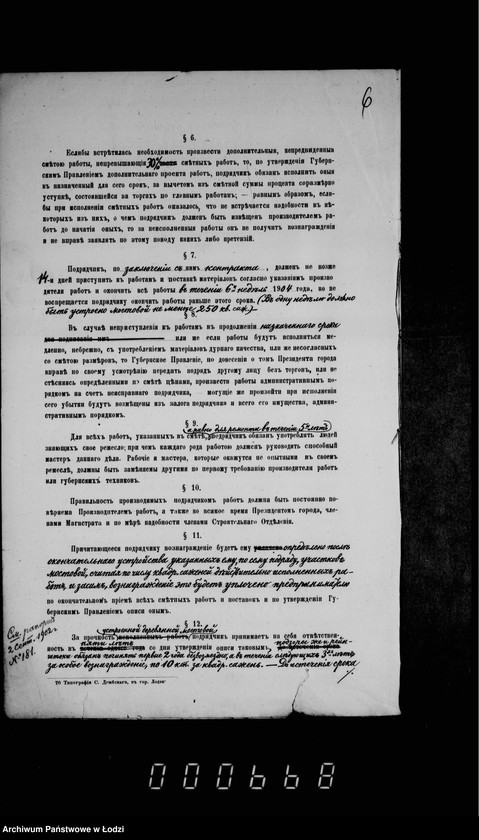 6
§ 6.
Еслибы встрѣтилась необходимость произвести дополнительныя, непредвидѣнныя
смѣтою работы, непревышающія 30% смѣтныхъ работъ, то, по утвержденіи Губерн-
скимъ Правленіемъ дополнительнаго проекта работъ, подрядчикъ обязанъ исполнить оныя
въ назначенный для сего срокъ, за вычетомъ изъ смѣтной суммы процента соразмѣрно
уступкѣ, состоявшейся на торгахъ по главнымъ работамъ; — равнымъ образомъ, если-
бы при исполненіи смѣтныхъ работъ оказалось, что не встрѣчается надобности въ нѣ-
которыхъ изъ нихъ, о чемъ подрядчикъ долженъ быть извѣщенъ производителемъ ра-
ботъ до начатія оныхъ, то за неисполненныя работы онъ не получитъ вознагражденія
и не вправѣ заявлять по этому поводу какихъ либо претензій.
§ 7.
Подрядчикъ, по заключеніи съ нимъ контракта, долженъ не позже
14-и дней приступить къ работамъ и поставкѣ матеріаловъ согласно указаніямъ произво
дителя работъ и окончить всѣ работы въ теченіи 6ти недѣль 1904 года, но не
воспрещается подрядчику окончить работы раньше этого срока. (Въ одну недѣлю должно
быть устроено мостовой не менѣе 250 кв. саж.)
§ 8.
Въ случаѣ неприступленія къ работамъ въ продолженіи назначеннаго срока
или же если работы будутъ исполняться ме-
дленно, небрежно, съ употребленіемъ матеріаловъ дурнаго качества, или же несогласныхъ
со смѣтою размѣровъ, то Губернское Правленіе, по донесеніи о томъ Президента города
вправѣ по своему усмотрѣнію передать подрядъ другому лицу безъ торговъ, или не
стѣсняясь опредѣленными по смѣтѣ цѣнами, произвести работы административнымъ по-
рядкомъ на счетъ неисправнаго подрядчика, могущіе же произойти при исполненіи
сего убытки будутъ возмѣщены изъ залога подрядчика и всего его имущества, админи-
стративнымъ порядкомъ.
§ 9.
(а равно для ремонта въ теченіи 5ти лѣтъ)
Для всѣхъ работъ, указанныхъ въ смѣтѣ, подрядчикъ обязанъ употреблять людей
знающихъ свое ремесло; при чемъ каждаго рода работою долженъ руководить способный
мастеръ даннаго дѣла. Рабочіе и мастера, которые окажутся не опытными въ своемъ
ремеслѣ, должны быть замѣняемы другими по первому требованію производителя работъ
или губернскихъ техниковъ.
§ 10.
Правильность производимыхъ подрядчикомъ работъ должна быть постоянно по-
вѣряема Производителемъ работъ, а также во всякое время Президентомъ города, чле-
нами Магистрата и по мѣрѣ надобности членами Строительнаго Отдѣленія.
§ 11.
Причитающееся подрядчику вознагражденіе будетъ ему опредѣлено послѣ
окончательнаго устройства указанныхъ ему, по сему подряду, участковъ
мостовой, считая по числу квадр. саженей дѣйствительно исполненныхъ ра-
ботъ, и засимъ, вознагражденіе это будетъ уплочено предпринимателю
по окончательномъ пріемѣ всѣхъ смѣтныхъ работъ и поставокъ и по утвержденіи Гу-
бернскимъ Правленіемъ описи онымъ.
§ 12.
устроенной деревянной мостовой
За прочность подрядчикъ принимаетъ на себя отвѣтствен-
ность въ пяти лѣтъ со дня утвержденія описи таковымъ,
обязанъ чинить первые 2 года безвозмездно, а въ теченіи слѣдующихъ 3хъ лѣтъ
за особое вознагражденіе, по 10 коп. за квадр. сажень. — До истеченія срока
См. рапортъ
2 сент. 1902 г.
№ 181.
70 Типографія С. Дембскаго, въ гор. Лодзи
000668
Archiwum Państwowe w Łodzi